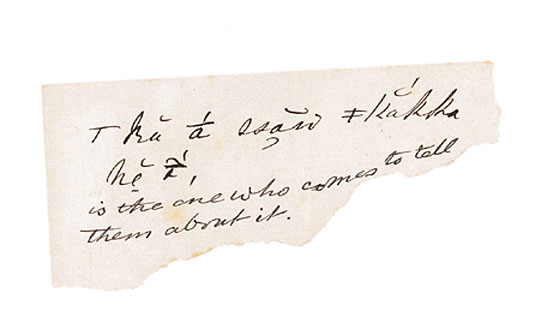 ⊤ hă á̄ ssặn ǂkắkka
hĕ̤ ā́,
is the one who comes to tell
them about it.